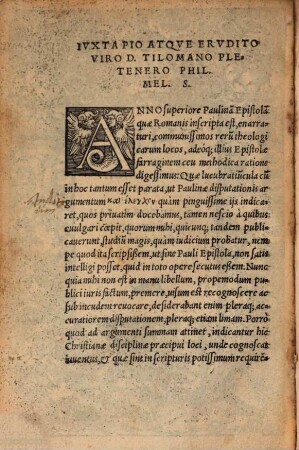 IVXTA PIO ATQVE ERVDITO
VIRO D. TILOMANO PLE-
TENERO PHIL.
MEL. S.
ANNO superiore Paulinã Epistolã
quæ Romanis inscripta est, enarra-
turi, communissimos rerũ theologi
carum locos, adeoq; illius Epistolæ
farraginem ceu methodica ratione
digessimus: Quæ lucubratiũcula cũ
in hoc tantum esset parata, ut Paulinæ disputationis ar-
gumentum καὶ quàm pinguissime ijs indica-
ret, quos priuatim docebamus, tamen nescio à quibus
euulgari cœpit, quorum mihi, quicunq; tandem publi-
cauerunt, studiũ magis, quàm iudicium probatur, nem-
pe quod ita scripsissem, ut sine Pauli Epistola, non satis
intelligi posset, quid in toto opere secutus essem. Nunc
quia mihi non est in manu libellum, propemodum pu-
blici iuris factum, premere, uisum est recognoscere ac
subincudem reuocare, desiderabant enim pleraq; accu-
ratiorem disputationem, pleraq; etiam limam. Porrò
quod ad argumenti summam attinet, indicantur hic
Christianæ disciplinæ præcipui loci, unde cognoscat
iuuentus, & quæ sint in scripturis potissimum requirē-